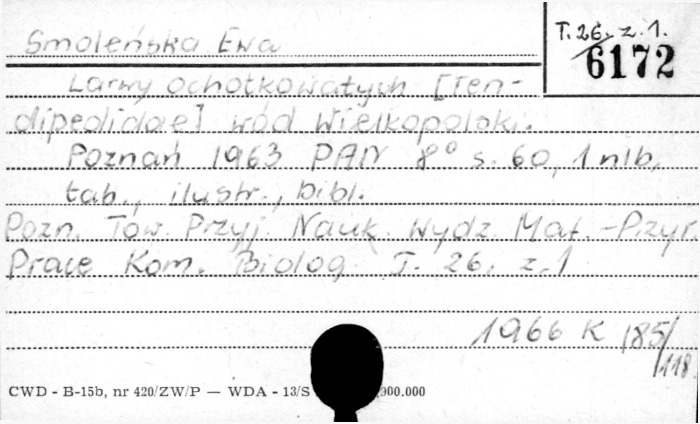 T. 26, z. 1.
6172
Smoleńska Ewa
Larwy ochotkowatych [Ten-
dipedidae] wód Wielkopolski.
Poznań 1963 PAN 8° s. 60, 1 nlb,
tab., ilustr., bibl.
Pozn. Tow. Przyj. Nauk. Wydz. Mat.-Przyr.
Prace Kom. Biolog. T. 26. z. 1
1966 K 185/
118.
CWD - B-15b, nr 420/ZW/P — WDA - 13/S 000.000